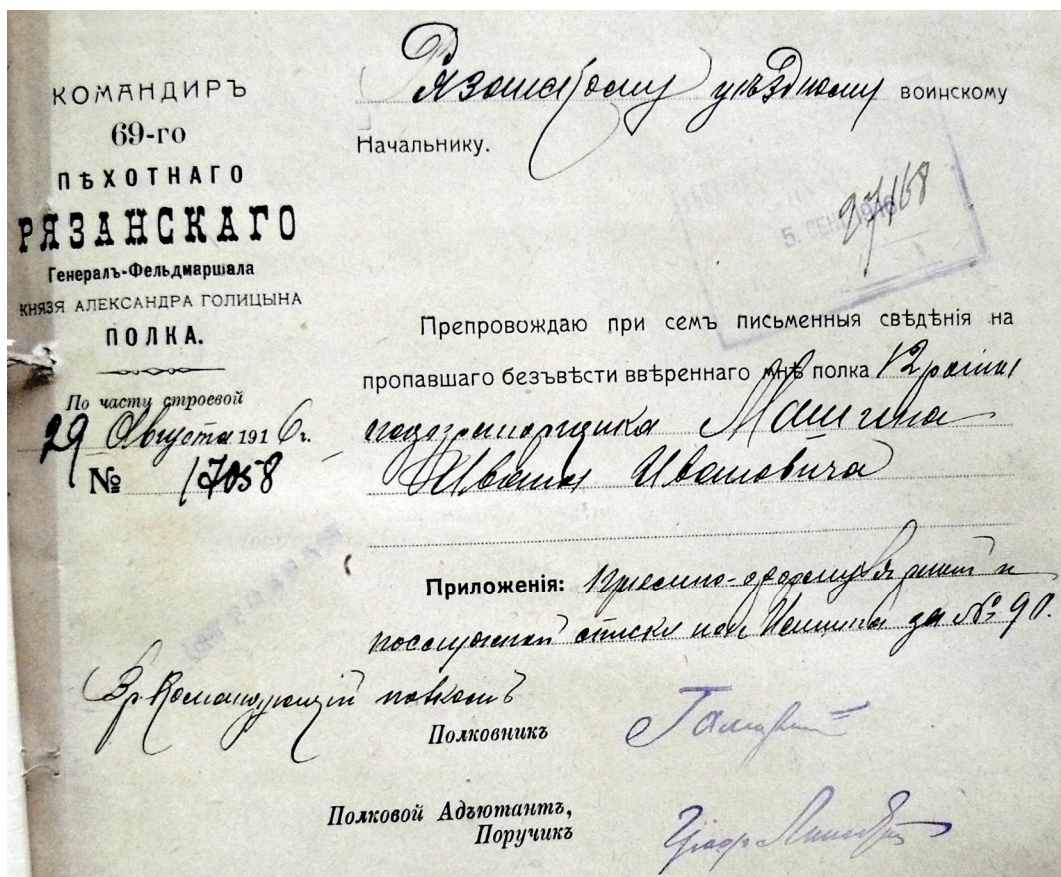 КОМАНДИРЪ
69-го
ПѢХОТНАГО
РЯЗАНСКАГО
Генералъ-Фельдмаршала
КНЯЗЯ АЛЕКСАНДРА ГОЛИЦЫНА
ПОЛКА.
По части строевой
29 Августа 1916 г.
№ 17058
Рязанскому уѣздному воинскому
Начальнику.
27168
5. СЕН. 1916
Препровождаю при семъ письменныя свѣдѣнія на
пропавшаго безъвѣсти ввѣреннаго мнѣ полка 12 роты
подпрапорщика
Ивана Ивановича
Приложенія:
послужной списки за № 90.
Вр. Командующій полкомъ
Полковникъ
Полковой Адъютантъ,
Поручикъ